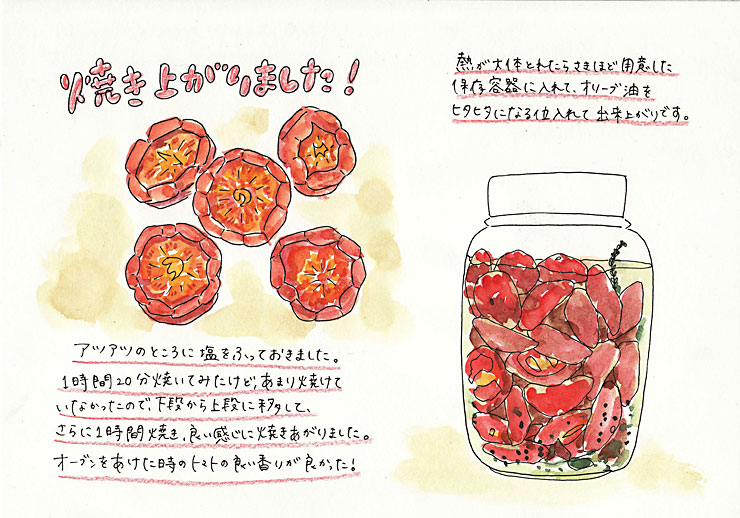 焼き上がりました！
アツアツのところに塩をふっておきました。
1時間20分焼いてみたけど、あまり焼けて
いなかったので、下段から上段に移して、
さらに1時間焼き、良い感じに焼きあがりました。
オーブンをあけた時のトマトの良い香りが良かった！
熱が大体とれたらさきほど用意した
保存容器に入れて、オリーブ油を
ヒタヒタになる位入れて出来上がりです。